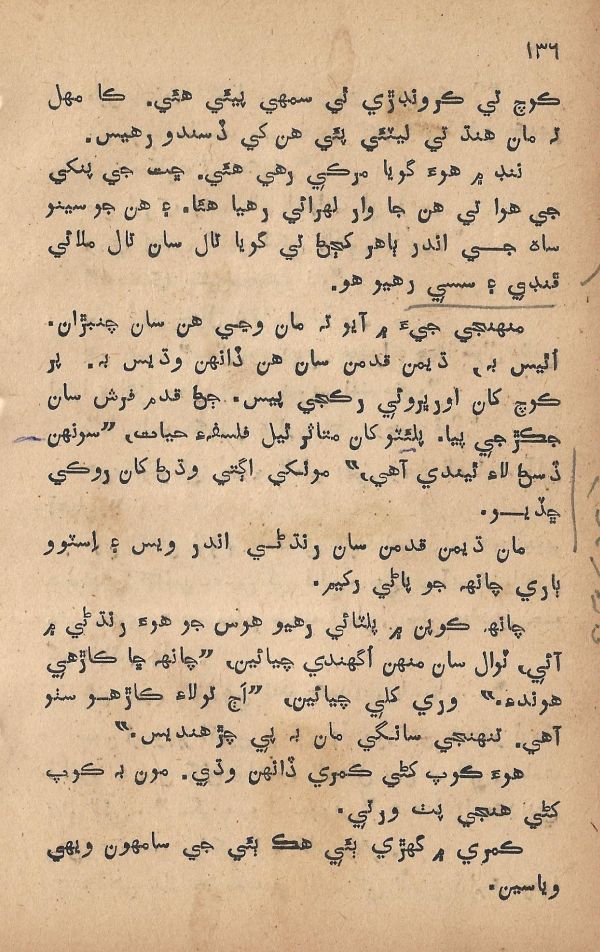 ١٣٦
ڪوچ تي ڪرونڊڙي ٿي سمهي پيئي هئي. ڪا مهل
ته مان هنڌ تي ليٽئي پئي هن کي ڏسندو رهيس.
ننڊ ۾ هوءَ گويا مرڪي رهي هئي. ڇت جي پنکي
جي هوا تي هن جا وار لهرائي رهيا هئا. ۽ هن جو سينو
ساه جي اندر ٻاهر کڄڻ تي گويا تال سان تال ملائي
ڦنڊي ۽ سسي رهيو هو.
منهنجي جيءَ ۾ آيو ته مان وڃي هن سان چنبڙان.
اُٿيس به، ڌيمن قدمن سان هن ڏانهن وڌيس به. پر
ڪوچ کان اورڀروئي رڪجي پيس. ڄڻ قدم فرش سان
جڪڙجي پيا. پلئٽو کان متاثر ٿيل فلسفهء حيات، ”سونهن
ڏسڻ لاءِ ٿيندي آهي،“ مونکي اڳتي وڌڻ کان روڪي
ڇڏيو.
مان ڌيمن قدمن سان رنڌڻي اندر ويس ۽ اِسٽوو
ٻاري چانهه جو پاڻي رکيم.
چانهه ڪوپن ۾ پلٽائي رهيو هوس جو هوءَ رنڌڻي ۾
آئي، ٽوال سان منهن اُگهندي چيائين، ”چانهه ڇا ڪاڙهي
هوندءِ.“ وري کلي چيائين، ”اڄ تولاءِ ڪاڙهو سٺو
آهي. تنهنجي سانگي مان به پي چڙهنديس.“
هوءَ ڪوپ کڻي ڪمري ڏانهن وڌي. مون به ڪوپ
کڻي هنجي پٺ ورتي.
ڪمري ۾ گهڙي ٻئي هڪ ٻئي جي سامهون ويهي
وياسين.